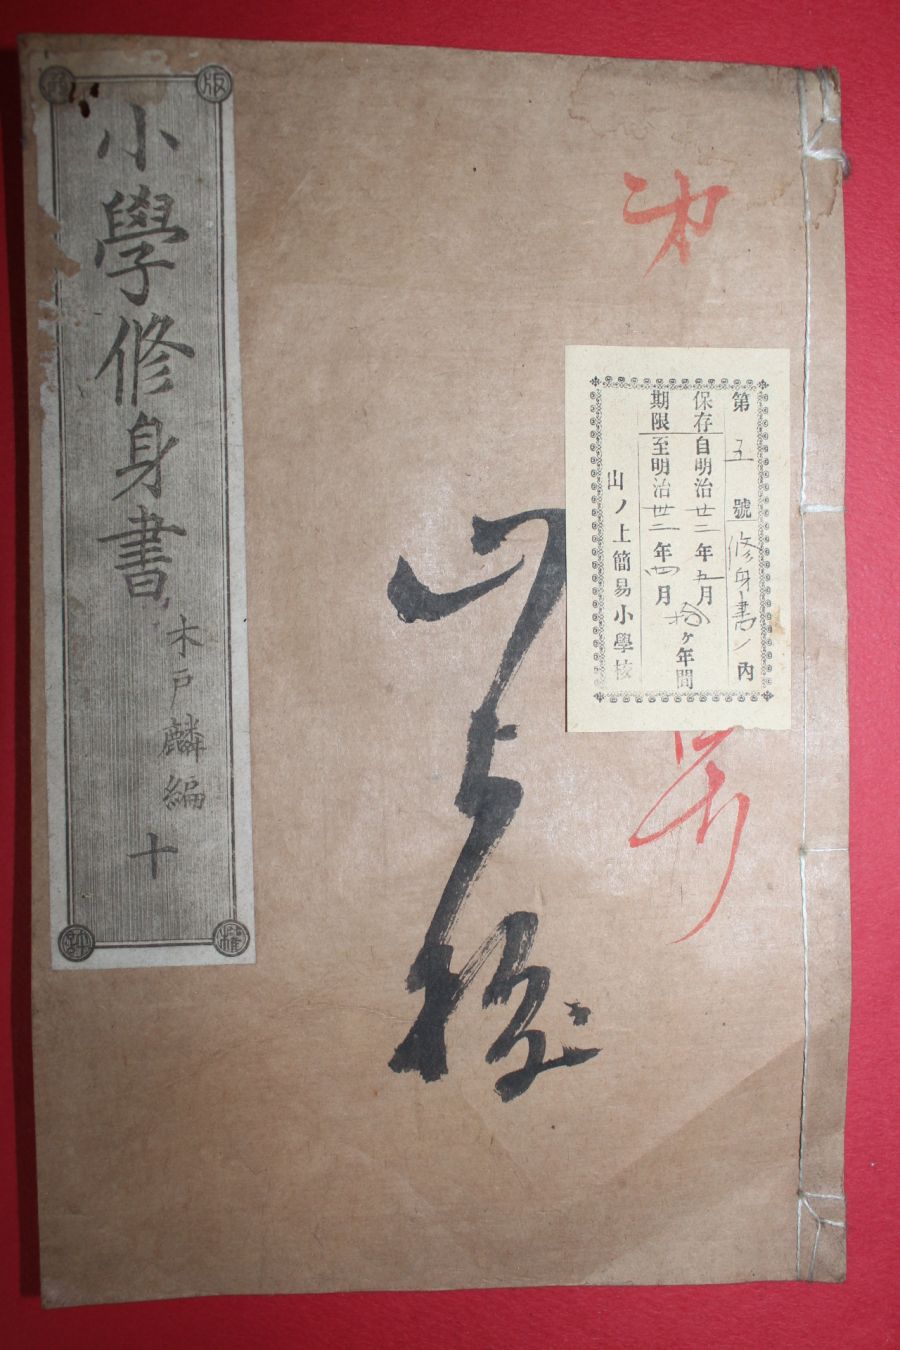 小學修身書
木戸麟編
十
版
權
許
第五號修身書ノ內
保存自明治廿二年九月
期限至明治卅二年四月
拾ヶ年間
山ノ上簡易小學校
山上校
第